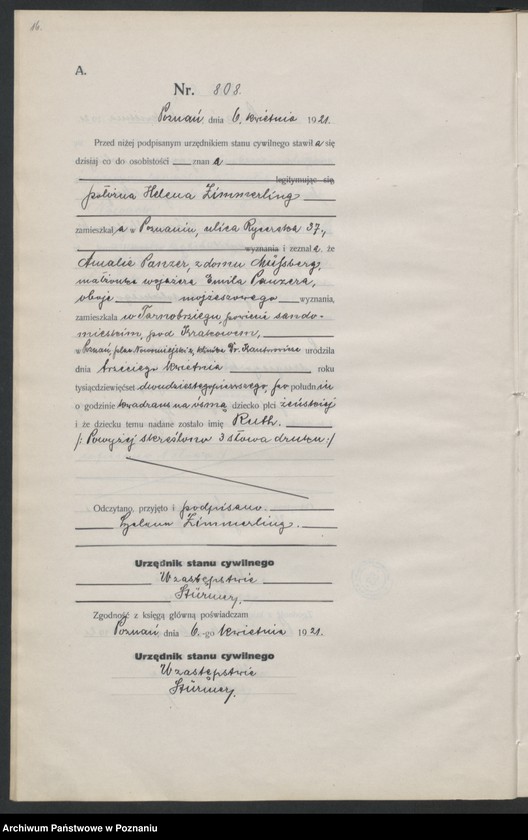 16.
A.
Nr. 808.
Poznań, dnia 6. kwietnia 1921.
Przed niżej podpisanym urzędnikiem stanu cywilnego stawiła się
dzisiaj co do osobistości znana
legitymując się
położna Helena Zimmerling
zamieszkała w Poznaniu, ulica Rycerska 37.,
wyznania i zeznała, że
Amalie Panzer, z domu
małżonka wojażera Emila Panzera,
oboje mojżeszowego wyznania,
zamieszkała w Tarnobrzegu, powiecie sando-
mierskim, pod Krakowem,
w Poznań, plac Nowomiejski, klinika Dr. Kantorowicz urodziła
dnia trzeciego kwietnia roku
tysiącdziewięćset dwudziestegopierwszego, po południu
o godzinie kwadrans na ósmą dziecko płci żeńskiej
i że dziecku temu nadane zostało imię Ruth.
/: Powyżej skreślono 3 słowa druku :/
Odczytano, przyjęto i podpisano.
Helena Zimmerling.
Urzędnik stanu cywilnego
W zastępstwie
Stürmer.
Zgodność z księgą główną poświadczam
Poznań dnia 6.-go kwietnia 1921.
Urzędnik stanu cywilnego
W zastępstwie
Stürmer.
Archiwum Państwowe w Poznaniu